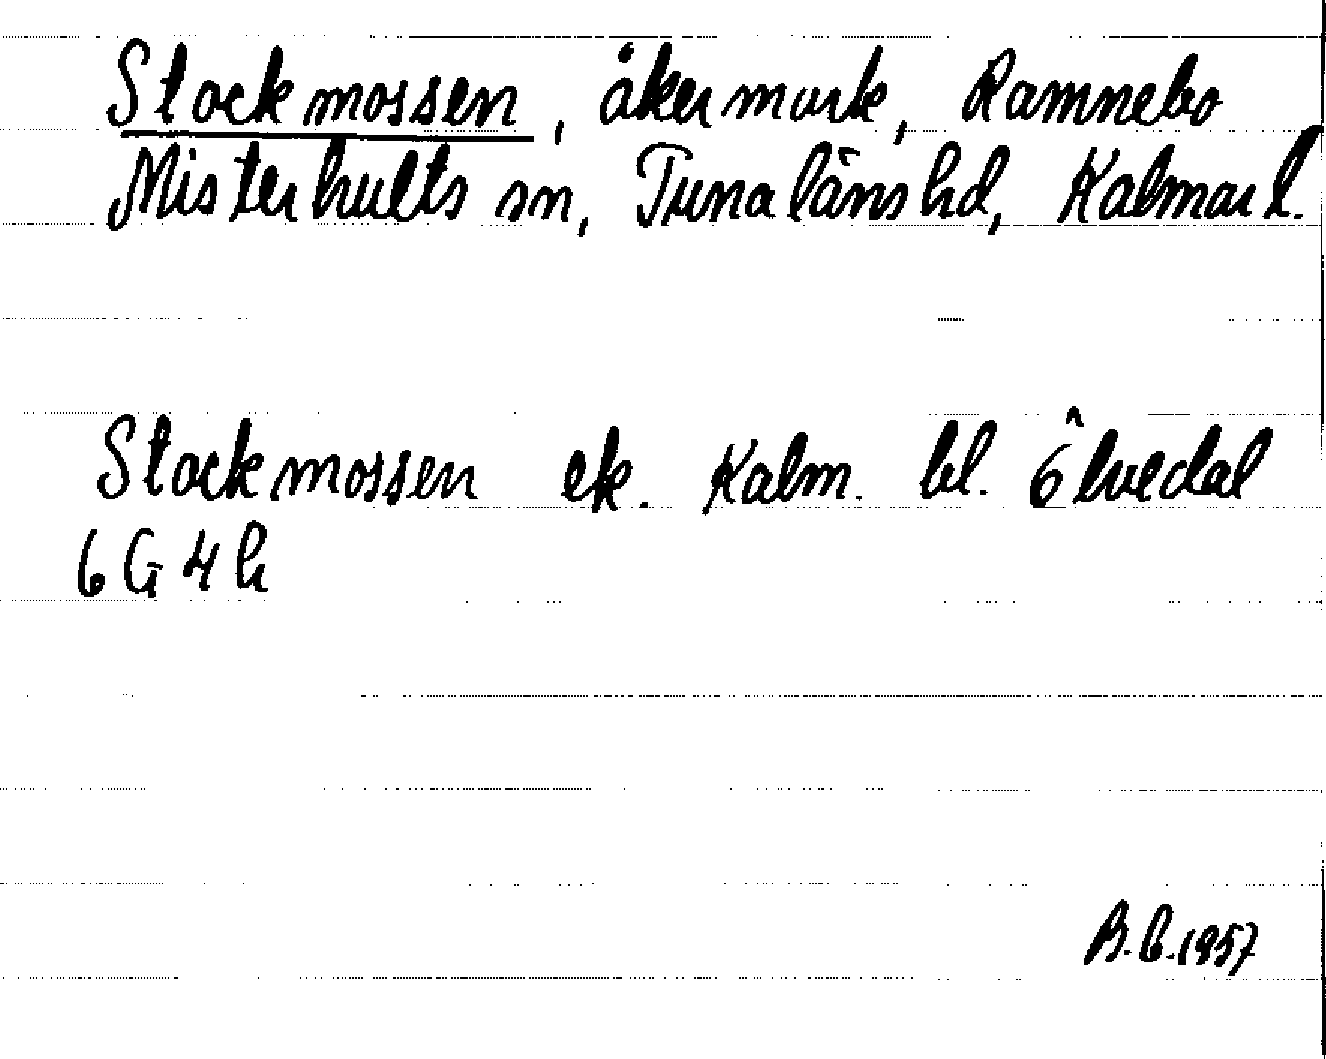 Stockmossen, åkermark, Ramnebo
Misterhults sn, Tunaläns hd, Kalmar l.
Stockmossen ek. Kalm. bl. Ölvedal
6G4h
B.C.1957